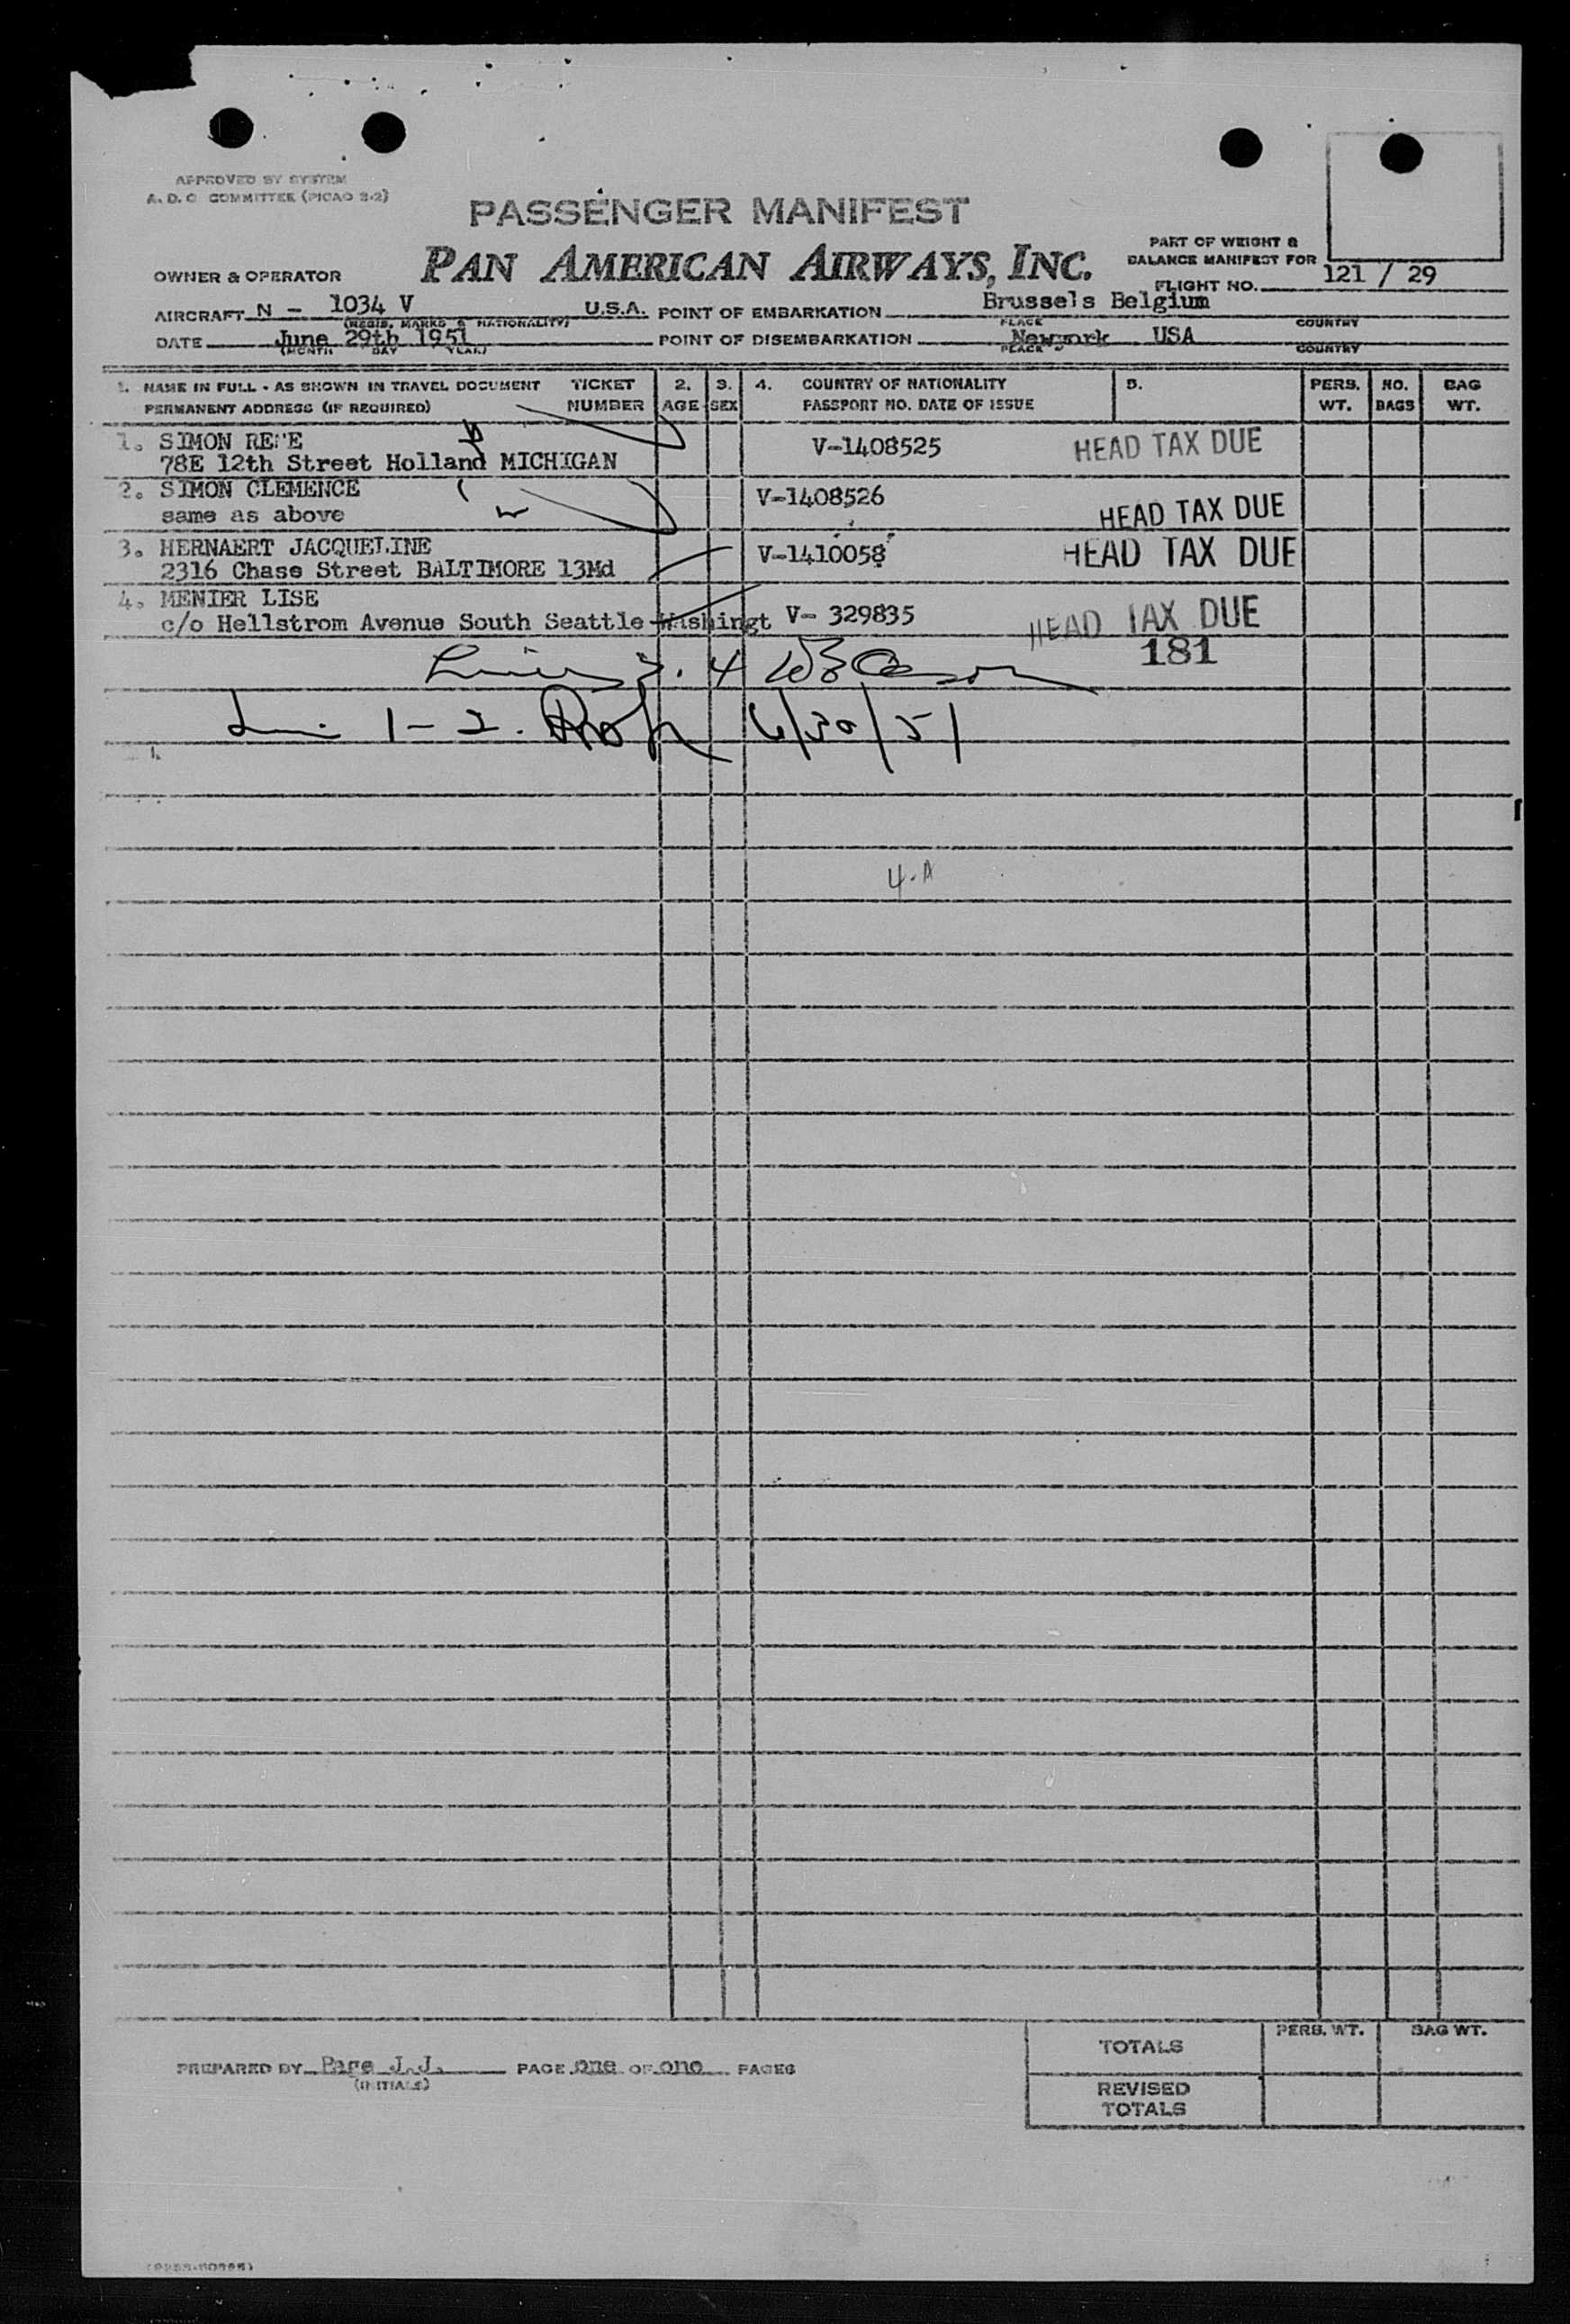 APPROVED BY SYSTEM
A. D. C COMMITTEE (PICAO 2-2)
PASSENGER MANIFEST
PAN AMERICAN AIRWAYS, INC.
OWNER & OPERATOR
PART OF WEIGHT &
BALANCE MANIFEST FOR
FLIGHT NO. 121 / 29
AIRCRAFT N - 1034 V U.S.A. POINT OF EMBARKATION Brussels Belgium
(REGIS. MARKS & NATIONALITY) PLACE COUNTRY
DATE June 29th 1951 POINT OF DISEMBARKATION Newyork USA
(MONTH DAY YEAR) PLACE COUNTRY
1. NAME IN FULL - AS SHOWN IN TRAVEL DOCUMENT TICKET 2. 3. 4. COUNTRY OF NATIONALITY 5. PERS. NO. BAG
PERMANENT ADDRESS (IF REQUIRED) NUMBER AGE SEX PASSPORT NO. DATE OF ISSUE WT. BAGS WT.
1. SIMON V-1408525 HEAD TAX DUE
78E 12th Street Holland MICHIGAN
2. SIMON CLEMENCE V-1408526
same as above HEAD TAX DUE
3. HERNAERT JACQUELINE V-1410058 HEAD TAX DUE
2316 Chase Street BALTIMORE 13Md
4. MENIER LISE
c/o Hellstrom Avenue South Seattle Washingt V- 329835 HEAD TAX DUE
181
1-2. 6/30/51
4-A
PREPARED BY Page J.J. PAGE one OF one PAGES
(INITIALS)
TOTALS PERS. WT. BAG WT.
REVISED
TOTALS